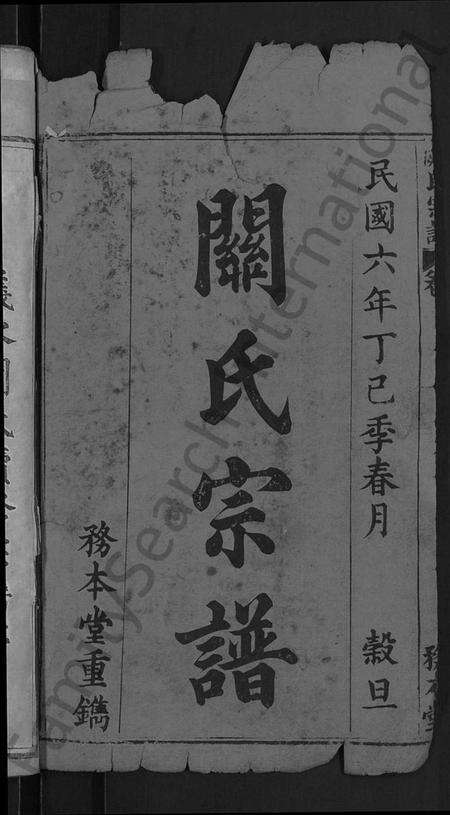 民國六年丁巳季春月 穀旦
關氏宗譜
務本堂重鐫
氏宗譜 卷
務本堂
FamilySearch International